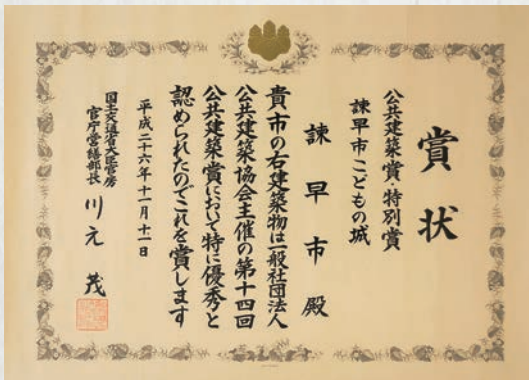 賞状
公共建築賞・特別賞
諫早市こどもの城
諫早市殿
貴市の右建築物は一般社団法人
公共建築協会主催の第十四回
公共建築賞において特に優秀と
認められたのでこれを賞します
平成二十六年十一月十一日
国土交通省大臣官房
官庁営繕部長 川元茂